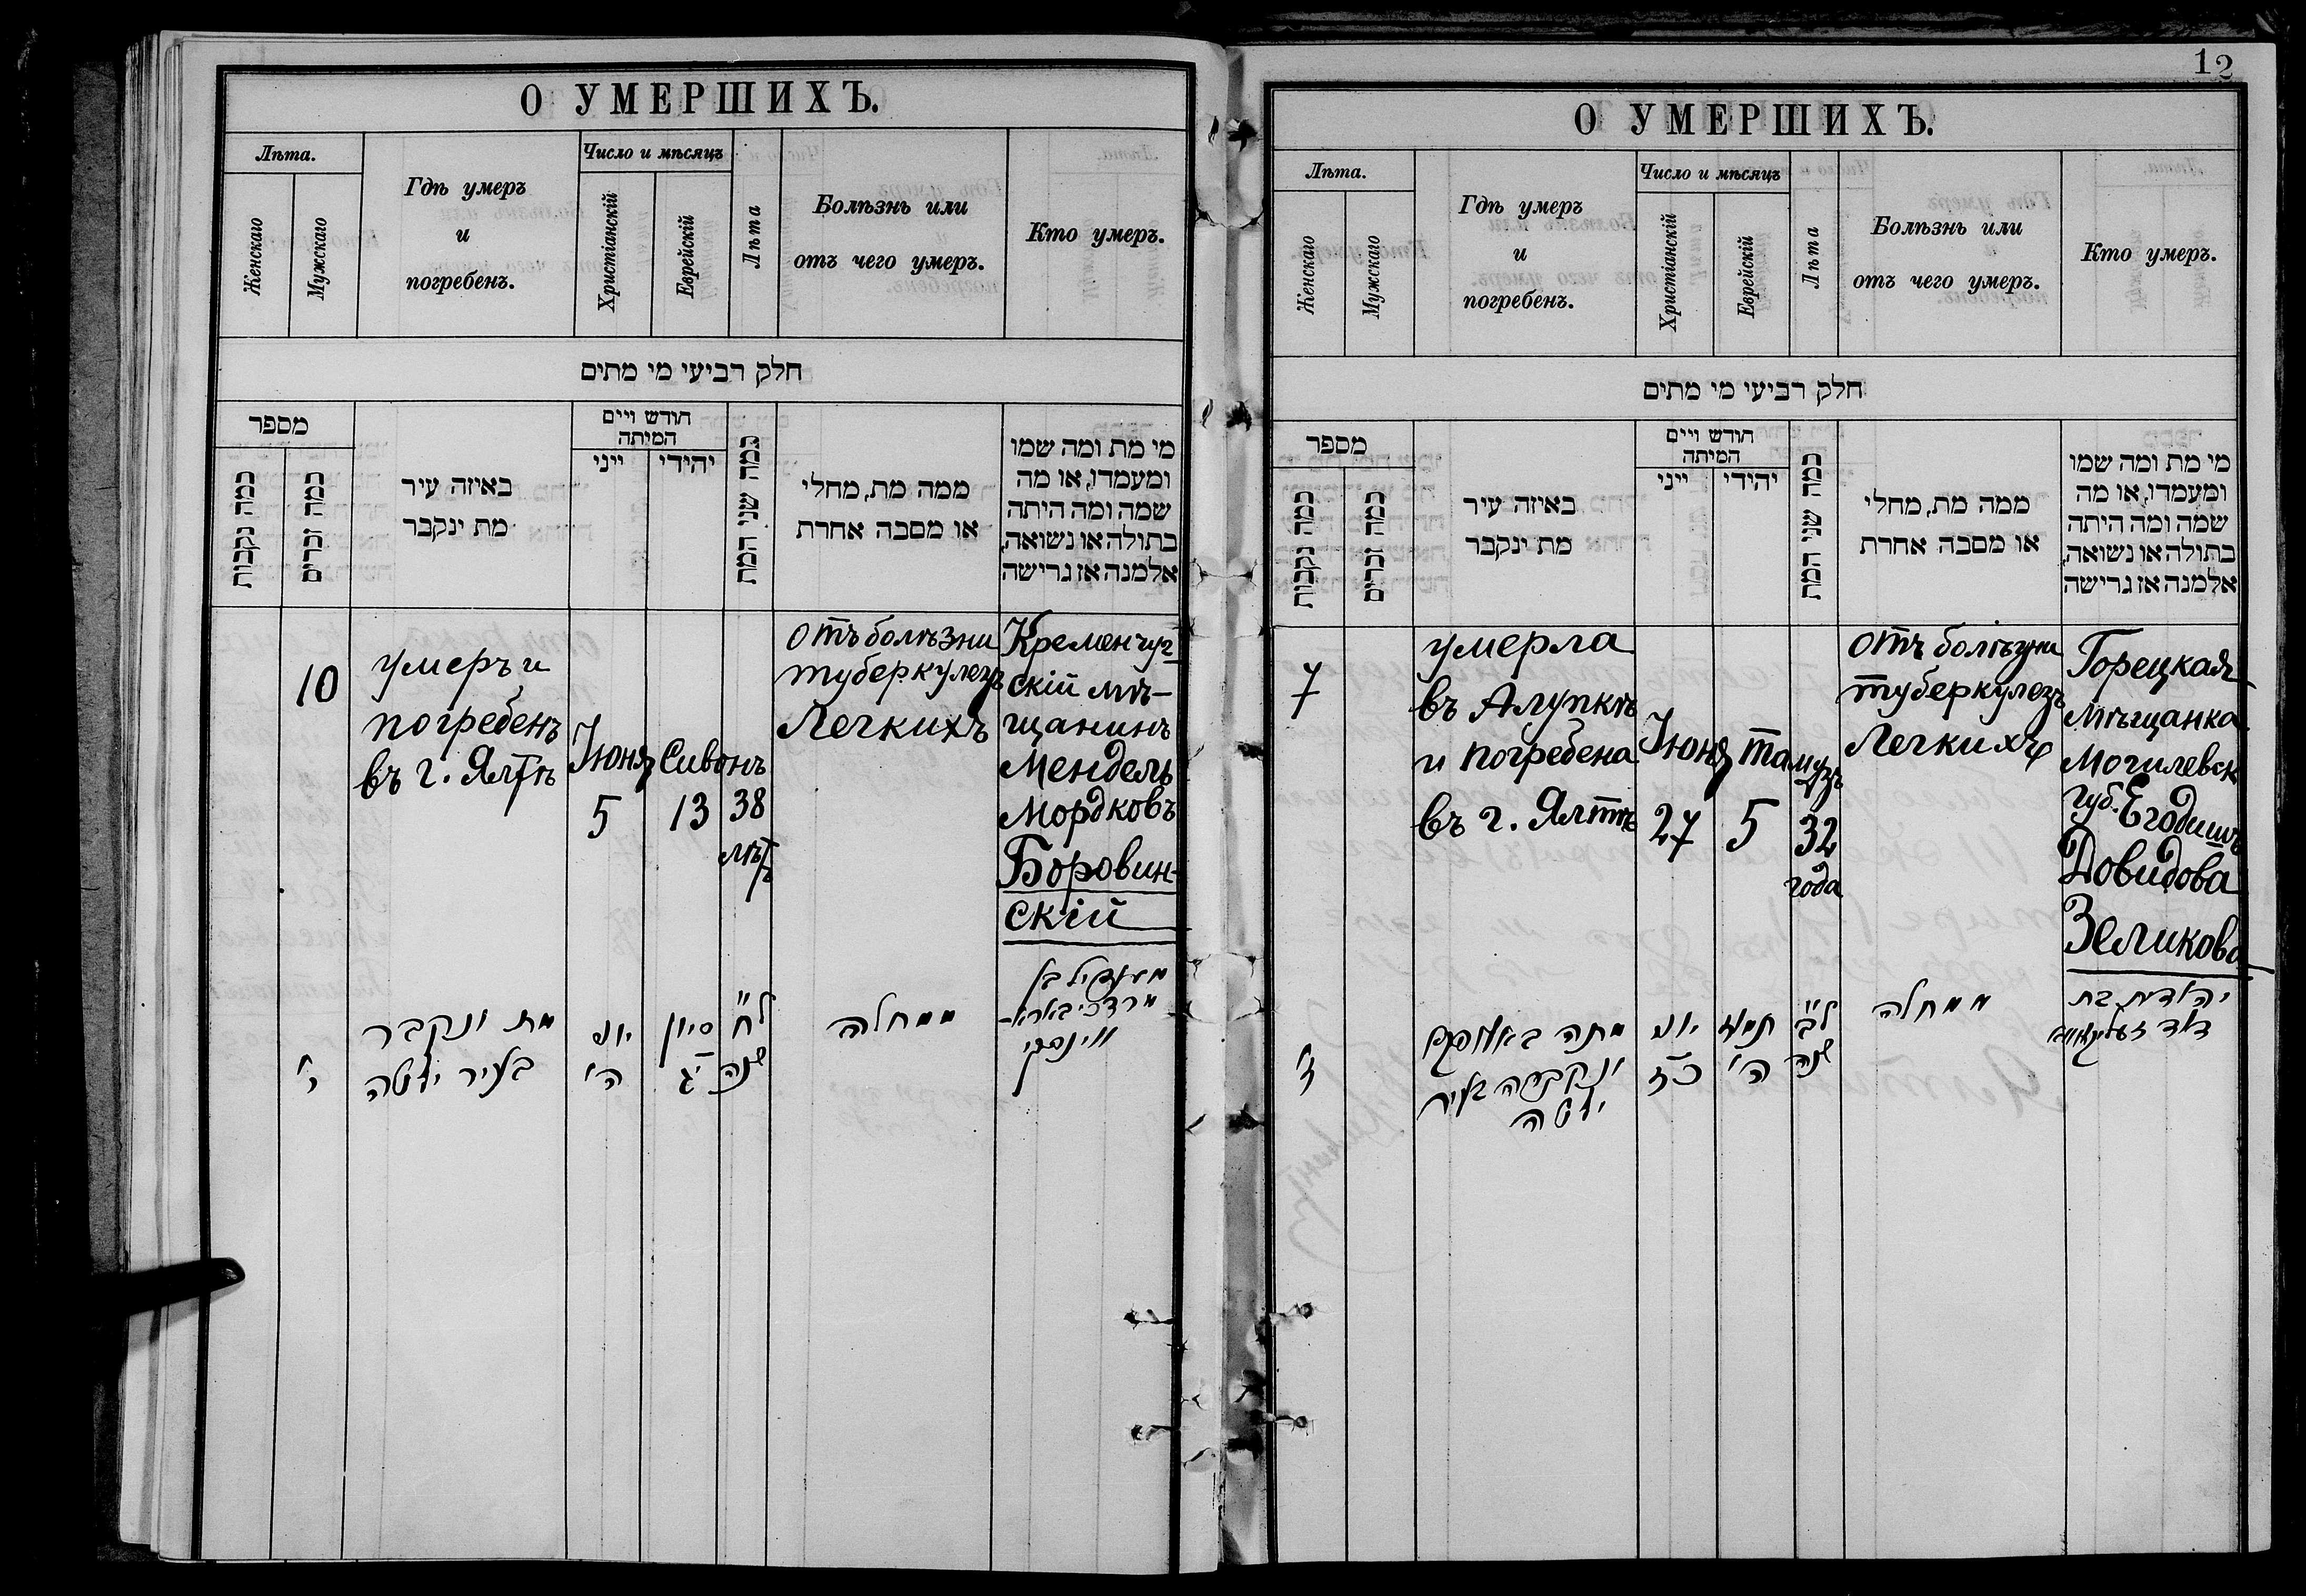 О УМЕРШИХЪ.
Лѣта.
Женскаго
Мужскаго
Гдѣ умеръ
и
погребенъ.
Число и мѣсяцъ
Христіанскій
Еврейскій
Лѣта
Болѣзнь или
отъ чего умеръ.
Кто умеръ.
חלק רביעי מי מתים
מספר
כמה נקבות
כמה זכרים
באיזה עיר
מת ינקבר
חודש ויים
המיתה
ייני
יהידי
כמה שני המת
ממה מת, מחלי
או מסבה אחרת
מי מת ומה שמו
ומעמדו, או מה
שמה ומה היתה
בתולה או נשואה,
אלמנה אז גרישה
10
умеръ и
погребенъ
въ г. Ялтѣ
Июня
5
Сивонъ
13
38
лѣтъ
отъ болѣзни
туберкулезъ
Легкихъ
Кременчуг
скій мѣ-
щанинъ
Мендель
Мордковъ
Боровин-
скій
י'
מת ונקבר
בעיר ילטה
יונ
ה'
סיון
י"ג
ל"ח
שנה
ממחלה
מענדיל בן
מרדכי בארא-
ווינסקי
12
О УМЕРШИХЪ.
Лѣта.
Женскаго
Мужскаго
Гдѣ умеръ
и
погребенъ.
Число и мѣсяцъ
Христіанскій
Еврейскій
Лѣта
Болѣзнь или
отъ чего умеръ.
Кто умеръ.
חלק רביעי מי מתים
מספר
כמה נקבות
כמה זכרים
באיזה עיר
מת ינקבר
חודש ויים
המיתה
ייני
יהידי
כמה שני המת
ממה מת, מחלי
או מסבה אחרת
מי מת ומה שמו
ומעמדו, או מה
שמה ומה היתה
בתולה או נשואה,
אלמנה אז גרישה
7
умерла
въ Алупкѣ
и погребена
въ г. Ялтѣ
Июня
27
Тамузъ
5
32
года
отъ болѣзни
туберкулезъ
Легкихъ
Горецкая
Мѣщанка
Могилевск
губ. Егодишъ
Довидова
Зеликова
ז'
מתה
ונקברה בעיר
ילטה
יונ
כ"ז
תמוז
ה'
ל"ב
שנה
ממחלה
יהודית בת
דוד